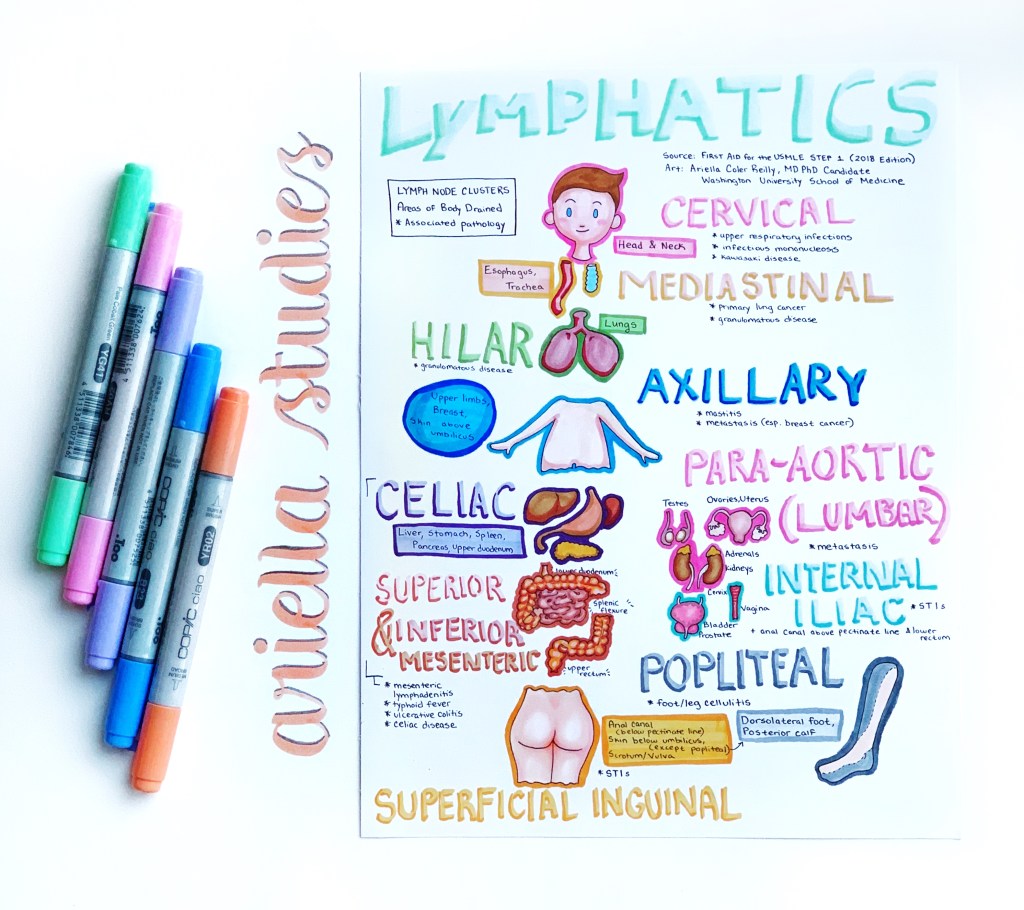 LYMPHATICS
Source: FIRST AID for the USMLE STEP 1 (2018 Edition)
Art: Ariella Coler Reilly, MD PhD Candidate
Washington University School of Medicine
LYMPH NODE CLUSTERS
Areas of Body Drained
* Associated pathology
CERVICAL
* upper respiratory infections
* infectious mononucleosis
* kawasaki disease
Head & Neck
Esophagus,
Trachea
MEDIASTINAL
* primary lung cancer
* granulomatous disease
HILAR
* granulomatous disease
Lungs
AXILLARY
* mastitis
* metastasis (esp. breast cancer)
Upper limbs,
Breast,
Skin above
umbilicus
PARA-AORTIC
(LUMBAR)
* metastasis
Testes
Ovaries, Uterus
Adrenals
Kidneys
CELIAC
Liver, Stomach, Spleen,
Pancreas, Upper duodenum
SUPERIOR
& INFERIOR
MESENTERIC
lower duodenum
splenic
flexure
upper
rectum
* mesenteric
lymphadenitis
* typhoid fever
* ulcerative colitis
* celiac disease
INTERNAL
ILIAC
* STIs
Cervix
Vagina
Bladder
Prostate
+ anal canal above pectinate line & lower
rectum
POPLITEAL
* foot/leg cellulitis
Dorsolateral foot,
Posterior calf
Anal canal
(below pectinate line)
Skin below umbilicus,
(except popliteal)
Scrotum/Vulva
* STIs
SUPERFICIAL INGUINAL
ariella studies
YG41
Too
COPIC ciao
YR02